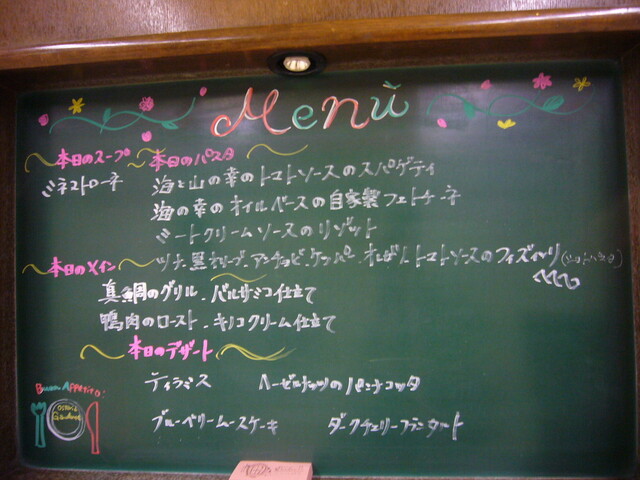 Menù
本日のスープ
ミネストローネ
本日のパスタ
海と山の幸のトマトソースのスパゲティ
海の幸のオイルベースの自家製フェトチーネ
ミートクリームソースのリゾット
ツナ.黒オリーブ.アンチョビ.ケッパー.トマトソースのフィズィッリ
本日のメイン
真鯛のグリル.バルサミコ仕立て
鴨肉のロースト.キノコクリーム仕立て
本日のデザート
ティラミス ヘーゼルナッツのパンナコッタ
ブルーベリームースケーキ ダークチェリーフランタルト
Buon Appetito!